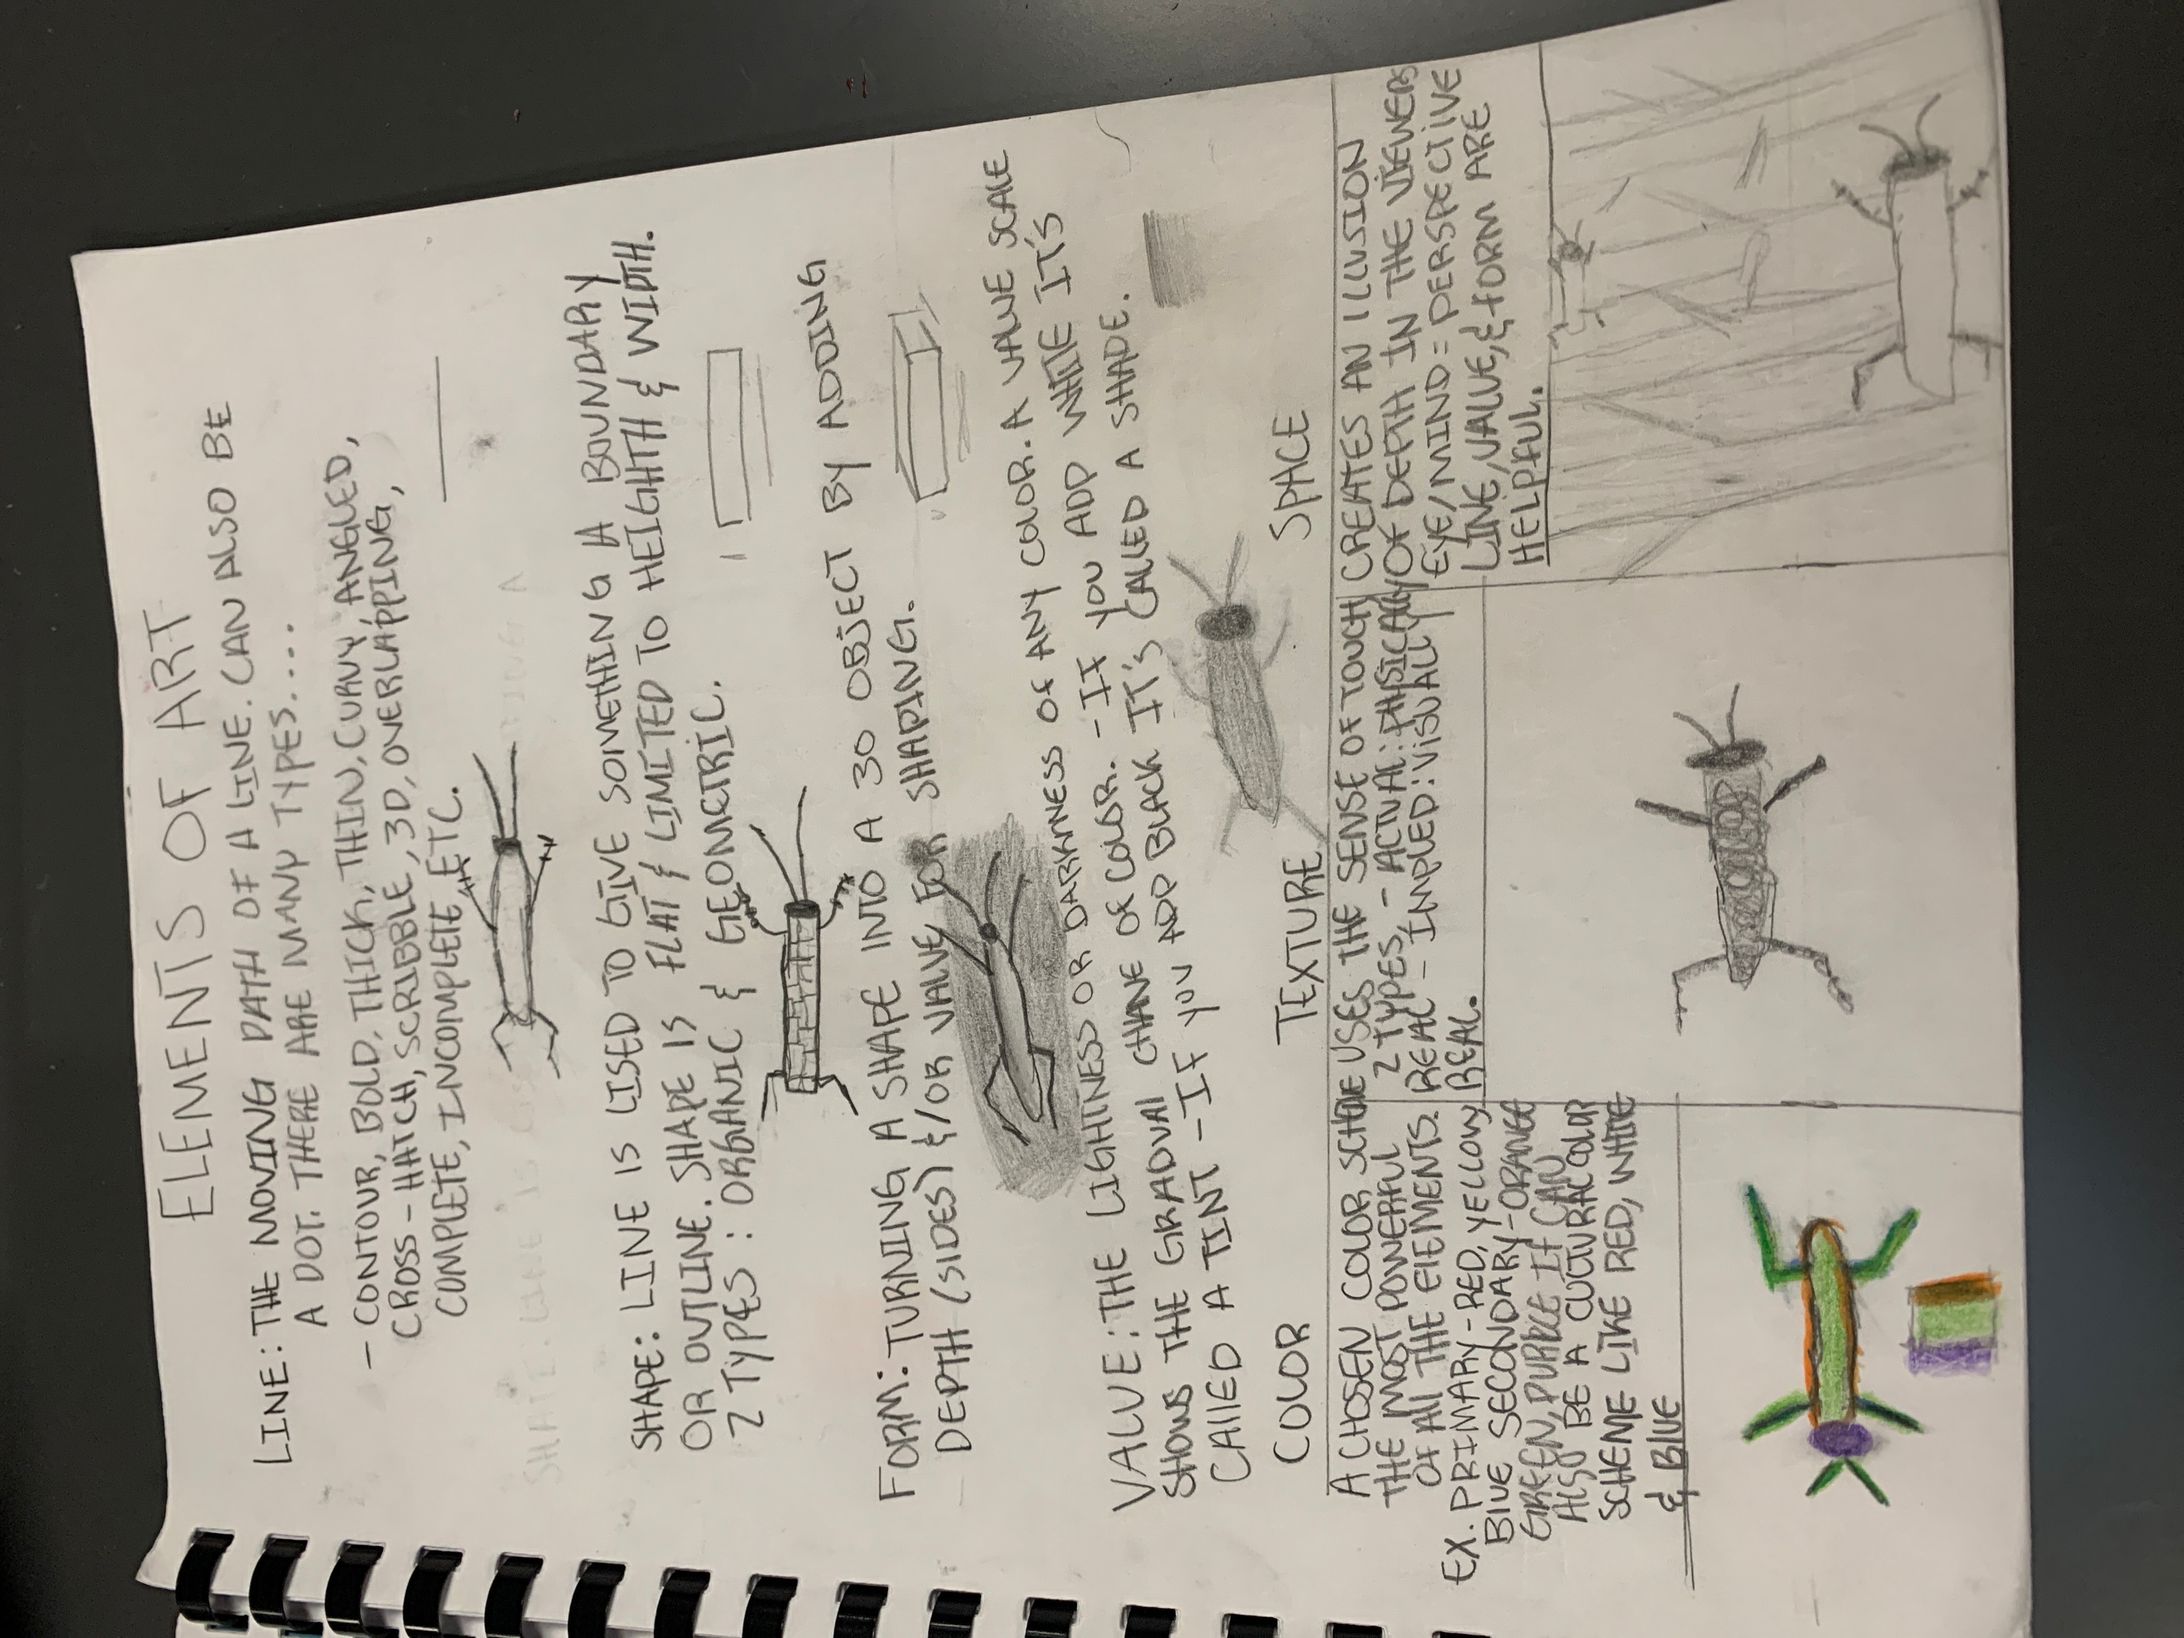 ELEMENTS OF ART
LINE: THE MOVING PATH OF A LINE. CAN ALSO BE
A DOT. THERE ARE MANY TYPES....
- CONTOUR, BOLD, THICK, THIN, CURVY, ANGLED,
CROSS-HATCH, SCRIBBLE, 3D, OVERLAPPING,
COMPLETE, INCOMPLETE, ETC.
SHAPE: LINE IS USED TO GIVE SOMETHING A BOUNDARY
OR OUTLINE. SHAPE IS FLAT & LIMITED TO HEIGHTH & WIDTH.
2 TYPES: ORGANIC & GEOMETRIC.
FORM: TURNING A SHAPE INTO A 3D OBJECT BY ADDING
DEPTH (SIDES) &/OR VALUE FOR SHADING.
VALUE: THE LIGHTNESS OR DARKNESS OF ANY COLOR. A VALUE SCALE
SHOWS THE GRADUAL CHANE OF COLOR. - IF YOU ADD WHITE IT'S
CALLED A TINT - IF YOU ADD BLACK IT'S CALLED A SHADE.
COLOR
A CHOSEN COLOR SCHEME
THE MOST POWERFUL
OF All THE ElEMENTS.
EX. PRIMARY-RED, YELLOW,
BLUE SECONDARY-ORANGE
GREEN, PURPLE IT CAN
AlSO BE A CULTURAL COLOR
SCHEME LIKE RED, WHITE
& BLUE
TEXTURE
USES THE SENSE OF TOUCH
2 TYPES, - ACTUAL: PHSICALLY
REAL - IMPLED: VISUALLY
REAL.
SPACE
CREATES AN ILLUSION
OF DEPTH IN THE VIEWERS
EYE/MIND = PERSPECTIVE
LINE, VALUE, & FORM ARE
HELPFUL.